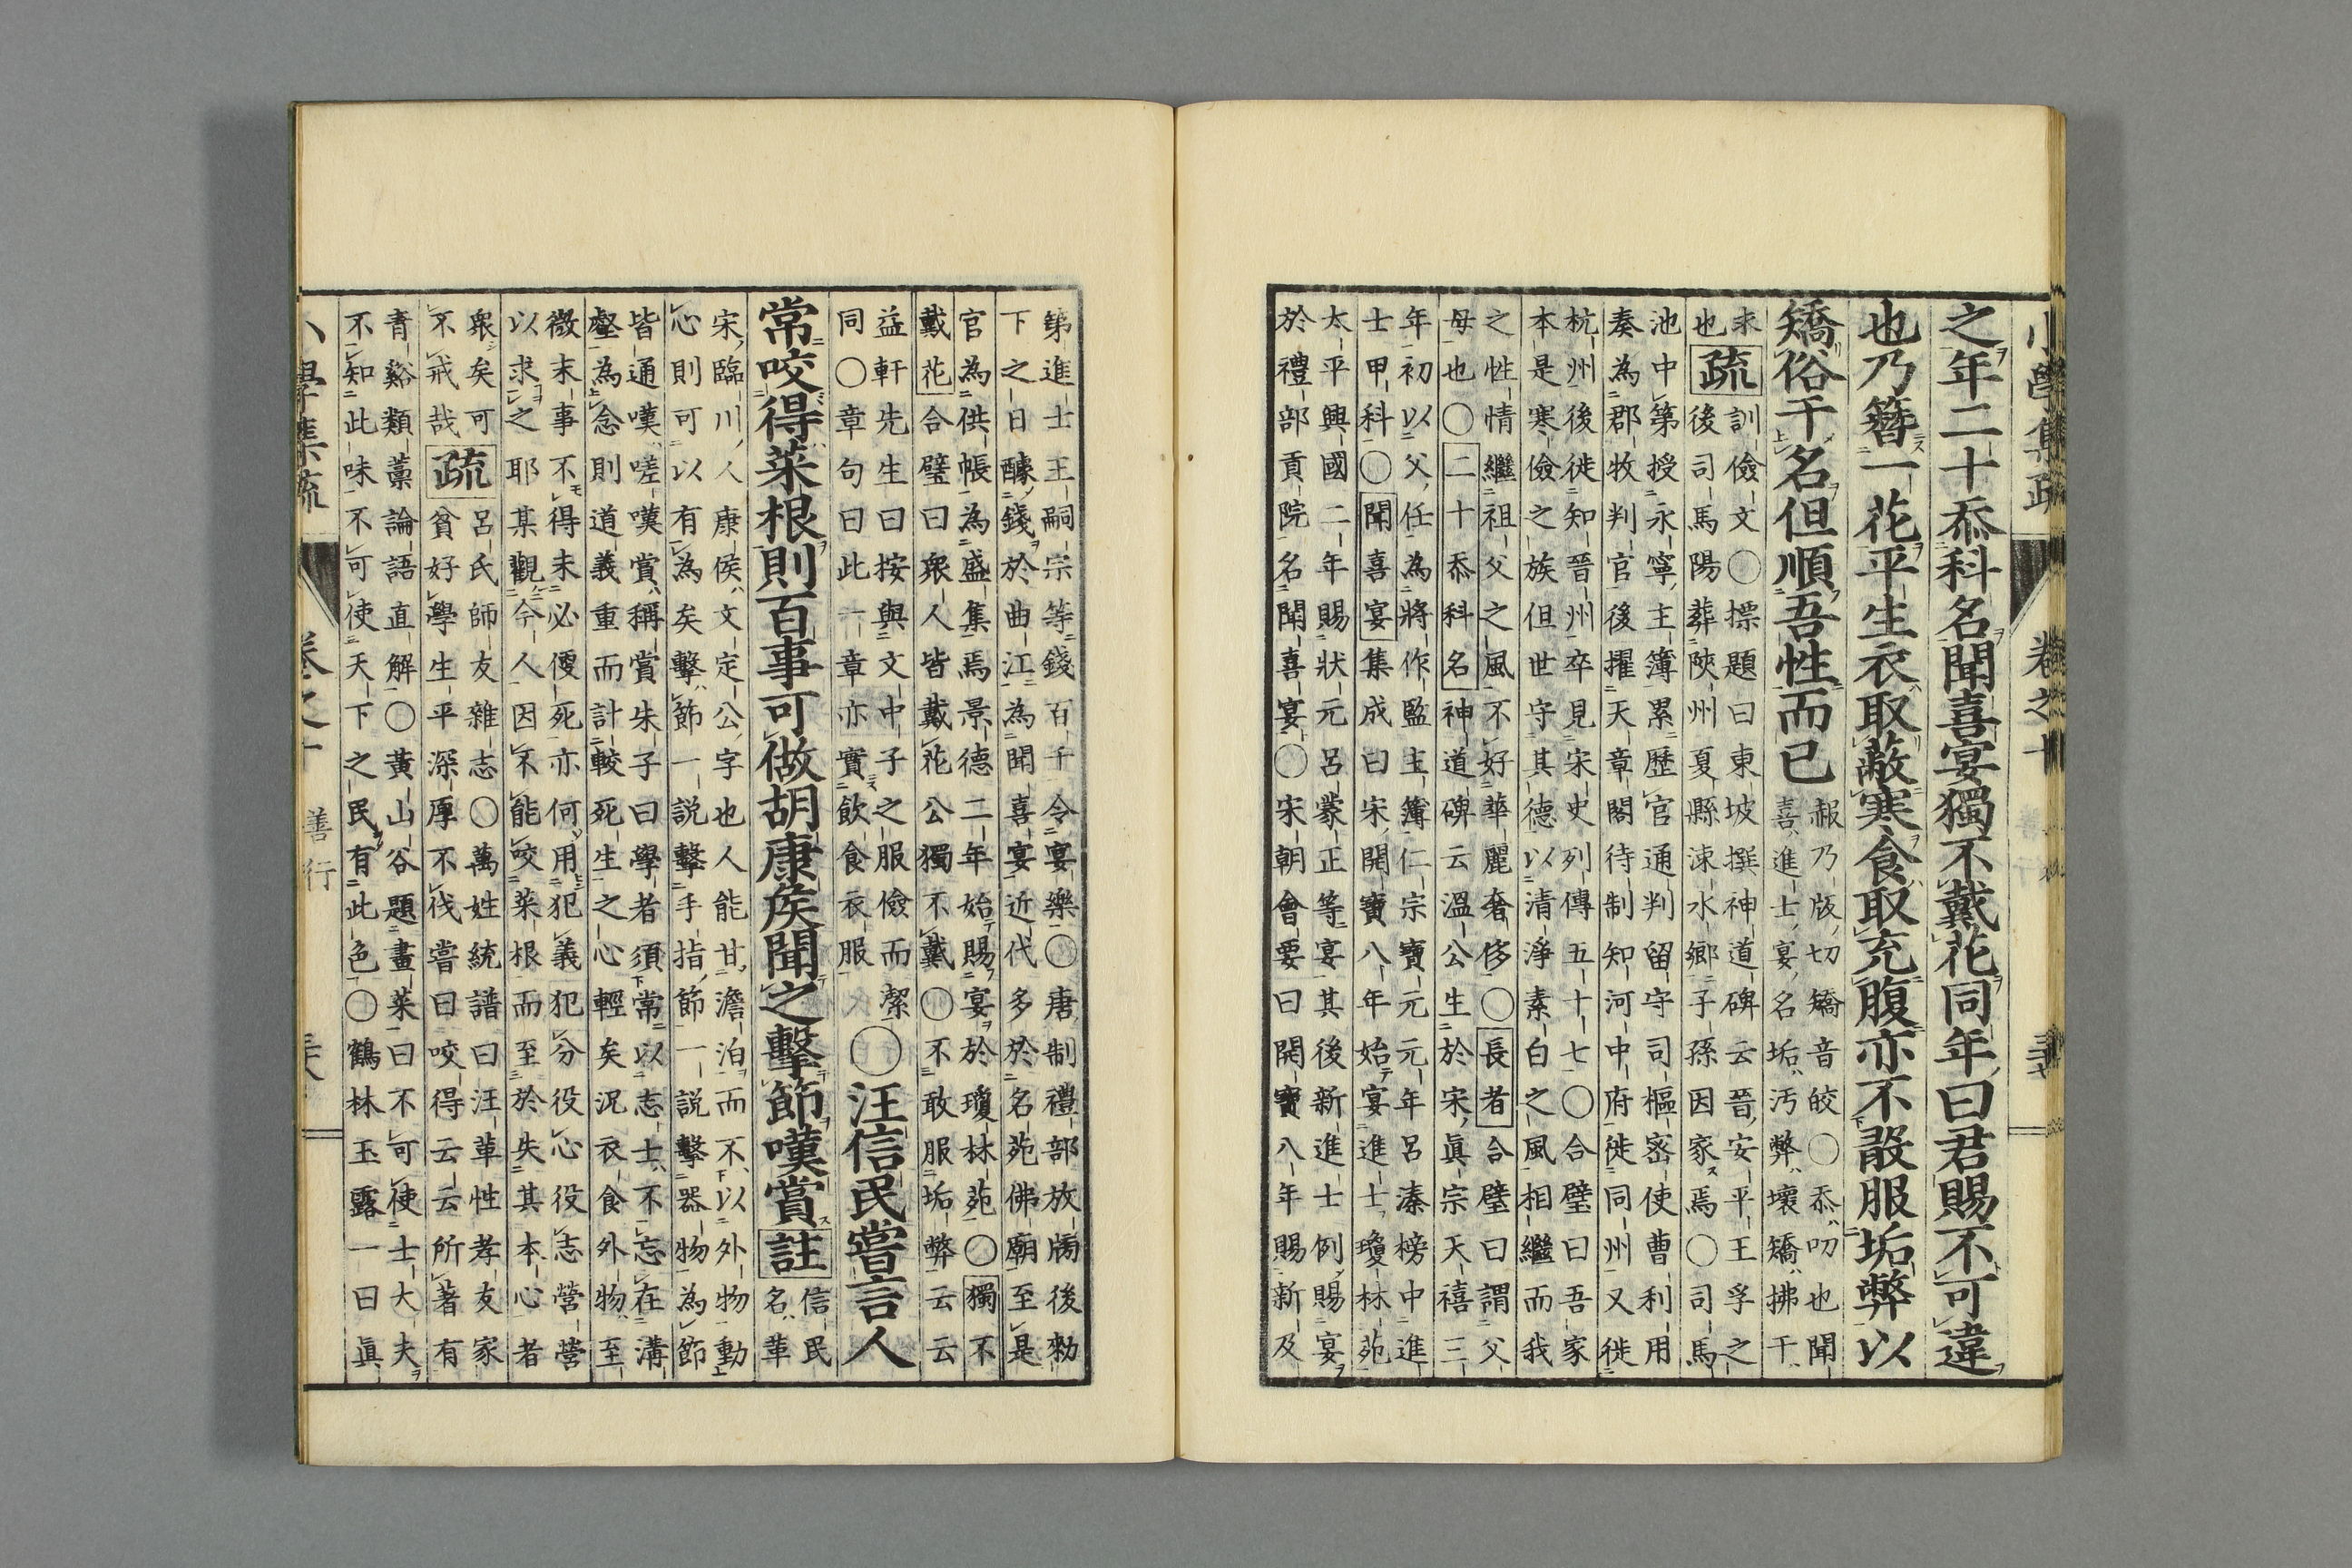 之年二十忝科名聞喜宴獨不戴花同年曰君賜不可違
也乃簪一花平生衣取蔽寒食取充腹亦不敢服垢弊以
矯俗干名但順吾性而已
赧乃版切矯音皎〇忝叨也聞
喜進士宴名垢汚弊壞矯拂干
求
也
疏
訓儉文〇摽題曰東坡撰神道碑云晉安平王孚之
後司馬陽葬陝州夏縣涑水郷子孫因家焉〇司馬
池中第授永寧主簿累歷官通判留守司樞密使曹利用
奏為郡牧判官後擢天章閣待制知河中府徙同州又徙
杭州後徙知晉州卒見宋史列傳五十七〇合璧曰吾家
本是寒儉之族但世守其德以清淨素白之風相繼而我
之性情繼祖父之風不好華麗奢侈〇長者合璧曰謂父
母也〇二十忝科名神道碑云溫公生於宋眞宗天禧三
年初以父任為將作監主簿仁宗寶元元年呂溱榜中進
士甲科〇聞喜宴集成曰宋開寶八年始宴進士瓊林苑
太平興國二年賜狀元呂蒙正等宴其後新進士例賜宴
於禮部貢院名聞喜宴〇宋朝會要曰開寶八年賜新及
第進士王嗣宗等錢百千令宴樂〇唐制禮部放牓後勑
下之日醵錢於曲江為聞喜宴近代多於名苑佛廟至是
官為供帳為盛集焉景德二年始賜宴於瓊林苑〇獨不
戴花合璧曰衆人皆戴花公獨不戴〇不敢服垢弊云云
益軒先生曰按與文中子之服儉而潔
同〇章句曰此一章亦實飲食衣服
〇汪信民嘗言人
常咬得菜根則百事可做胡康侯聞之擊節嘆賞
註
信民
名革
宋臨川人康侯文定公字也人能甘澹泊而不以外物動
心則可以有為矣擊節一說擊手指節一說擊器物為節
皆通嘆嗟嘆賞稱賞朱子曰學者須常以志士不忘在溝
壑為念則道義重而計較死生之心輕矣況衣食外物至
微末事不得未必便死亦何用犯義犯分役心役志營營
以求之耶某觀今人因不能咬菜根而至於失其本心者
衆矣可
不戒哉
疏
呂氏師友雜志〇萬姓統譜曰汪革性孝友家
貧好學生平深厚不伐嘗曰咬得云云所著有
青谿類藁論語直解〇黃山谷題畫菜曰不可使士大夫
不知此味不可使天下之民有此色〇鶴林玉露一曰眞
小學集疏
卷之十
善行